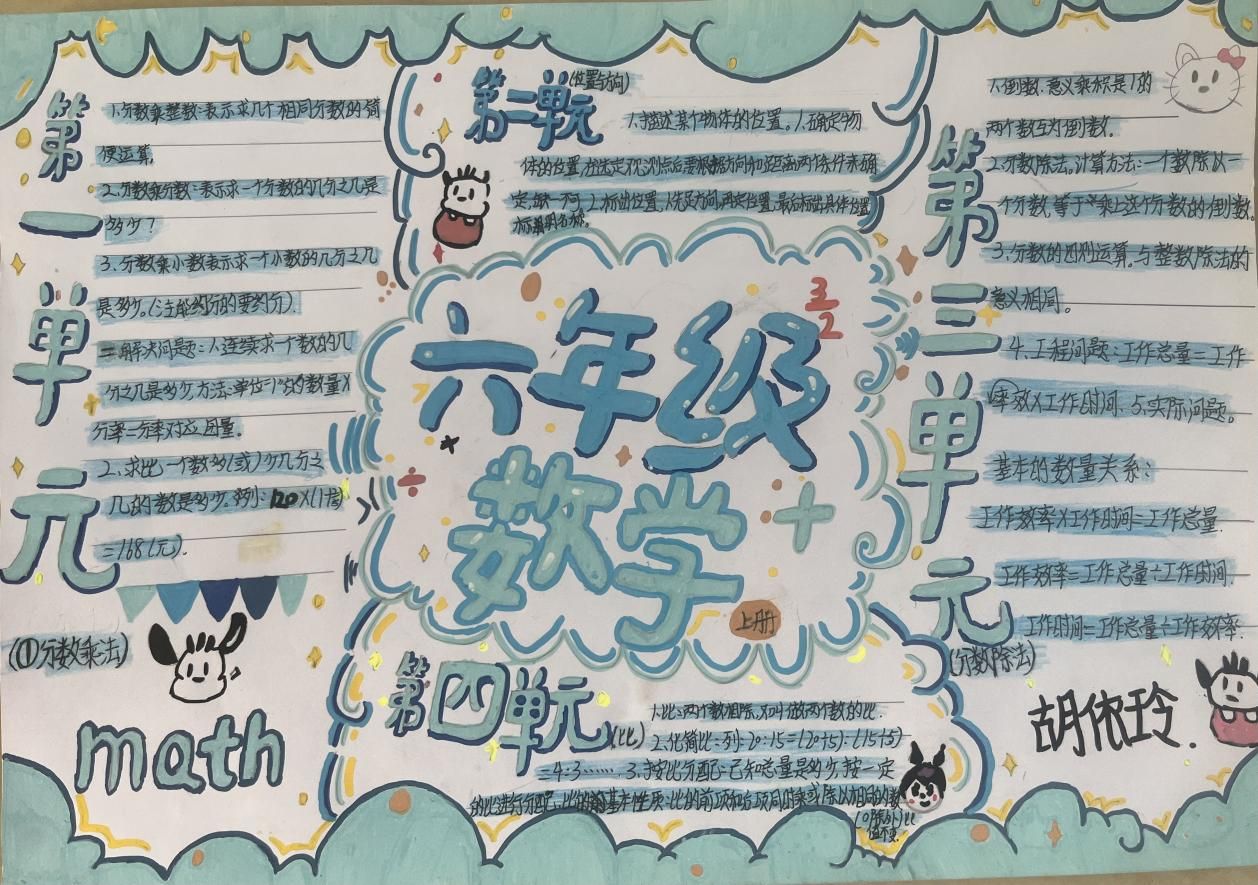 第一单元
1.分数乘整数:表示求几个相同分数的简
便运算。
2.分数乘分数:表示求一个分数的几分之几是
多少?
3.分数乘小数表示求一个小数的几分之几
是多少。(注能约分的要约分).
二解决问题:1、连续求一个数的几
分之几是多少,方法:单位"1"的数量×
分率=分率对应因量.
2、求比一个数多(或)少几分之
几的数是多少。列:120×(1
=168(元).
(①分数乘法)
math
第二单元(位置与方向)
1.描述某个物体的位置。1.确定物
体的位置,在选定观测点后要根据方向和距离两个条件来确
定,缺一不可。2.标出位置,1.先定方向,再定位置,最后标出具体位置
标清明名称.
六年级
3
2
数学
÷
+
上册
第三单元
1.倒数.意义乘积是1的
两个数互为倒数.
2.分数除法。计算方法:一个数除以一
个分数,等于乘上这个分数的倒数.
3.分数的四则运算。与整数除法的
意义相同。
4.工程问题:工作总量=工作
率效×工作时间.5.实际问题。
基本的数量关系:
工作效率×工作时间=工作总量.
工作效率=工作总量÷工作时间.
工作时间=工作总量÷工作效率.
(分数除法)
胡依玲.
第四单元(比)
1.比:两个数相除,又叫做两个数的比.
2.化简比:列:20:15=(20÷5):(15÷5)
=4:3……3.按比分配:已知总量是多少,按一定
的比进行分配,比的基本性质:比的前项和后项同时乘或除以相同的数
(0除外)比
值不变.